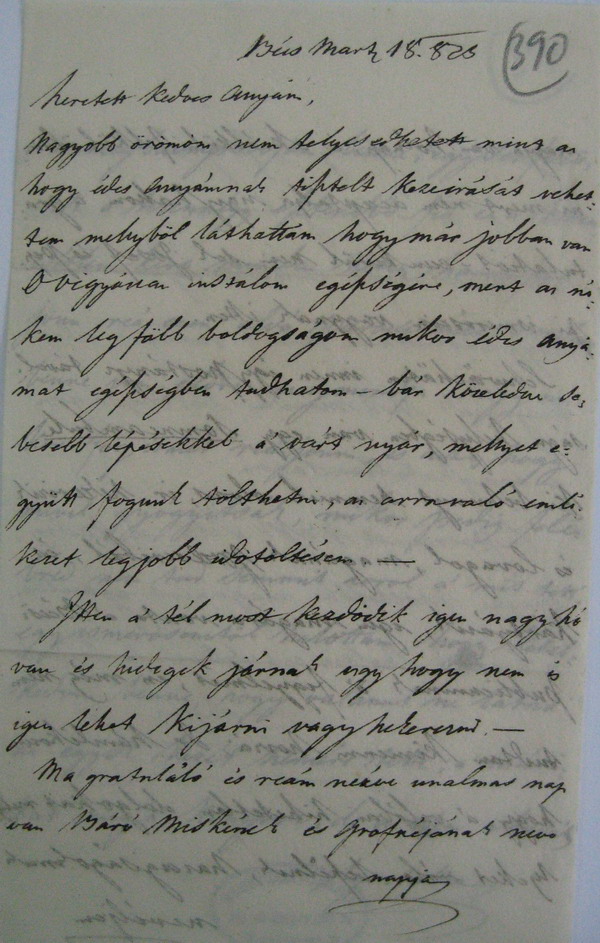 Bécs Mart 18. 823
390
Szeretett Kedves Anyám,
Nagyobb örömöm nem telyesedhetett mint az
hogy édes Anyámnak tiptelt kezeirását vehet-
tem mellyböl láthattam hogy már jobban van
vigyázzon instálom egépségére, mert az né-
kem legföbb boldogságom mikor édes Anyá-
mat egépségben tudhatom – bár közeledne se-
besebb lépésekkel á várt nyár, mellyet e-
gyütt fogunk tölthetni, az arravaló emlé-
kezet legjobb idötöltésem —
Itten á tél most kezdödik igen nagy hó
van és hidegek járnak ugy hogy nem is
igen lehet kijárni vagy —
Ma gratuláló és reám nézve unalmas nap
van Báró Miskének és Grofnéjának neve
napja